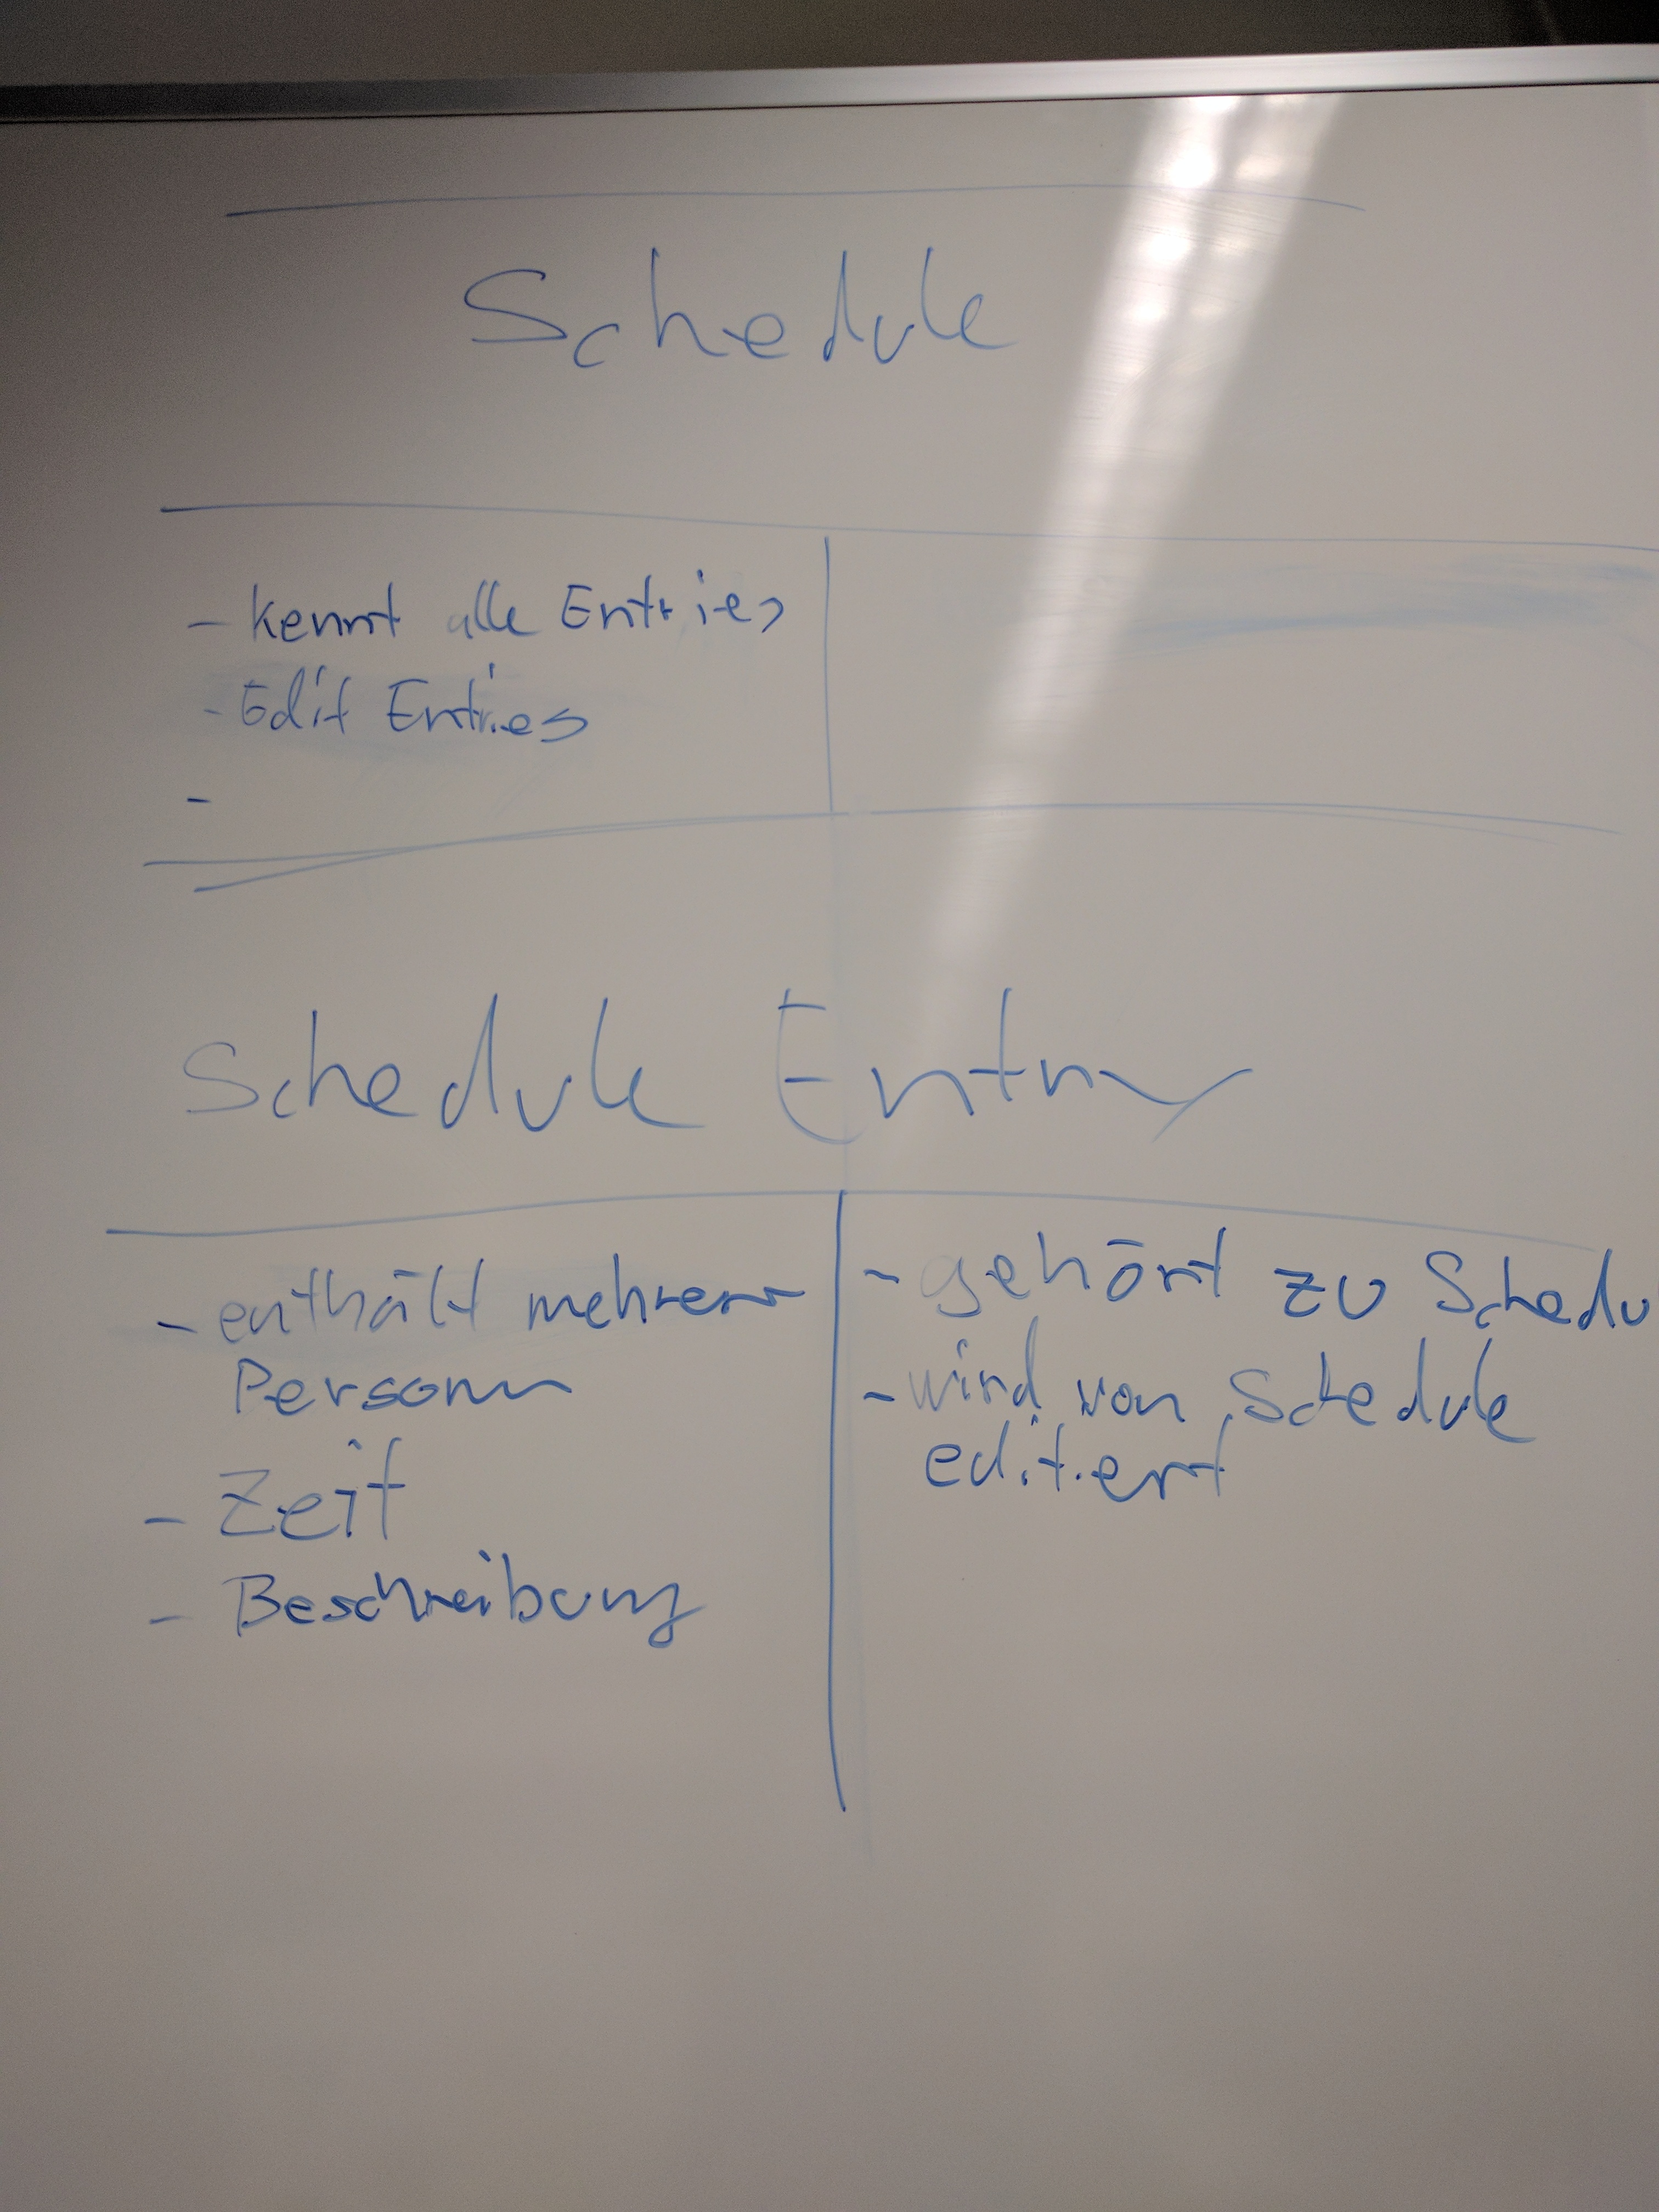 Schedule
- kennt alle Entries
- Edit Entries
-
Schedule Entry
- enthält mehrere
Personen
- Zeit
- Beschreibung
- gehört zu Schedu
- wird von Schedule
editiert